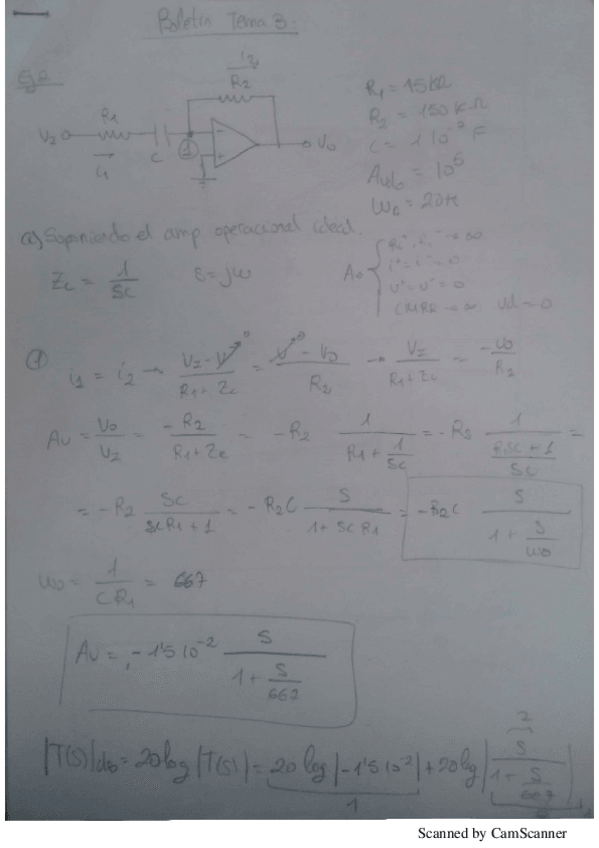 Boletín Tema 3.
Ej 2
i2
R2
R1
V2
i1
C
1
-
+
Vo
R1 = 15 KΩ
R2 = 150 K·Ω
C = 1 10
F
Avdo = 10^5
a) Suponiendo el amp operacional ideal.
Zc = 1/SC    s = jω
Ao { Ri+, Ri- → ∞
i+ = i- = 0
v+ = v- = 0
CMRR → ∞    Vd = 0
1
i1 = i2 → (V2 - V^0)/(R1 + Zc) = (V^0 - Vo)/R2 → V2/(R1 + Zc) = -Vo/R2
Av = Vo/V2 = -R2/(R1 + Zc) = -R2 1/(R1 + 1/SC) = -R2 1/((R1SC + 1)/SC) =
= -R2 SC/(SCR1 + 1) = -R2C S/(1 + SCR1) = -R2C S/(1 + S/ω0)
ω0 = 1/(CR1) = 667
Av = -1'5 10^-2 S/(1 + S/667)
|T(s)|dB = 20 log |T(s)| = 20 log |-1'5 10^-2| + 20 log |S/(1 + S/667)|
1
2
Scanned by CamScanner